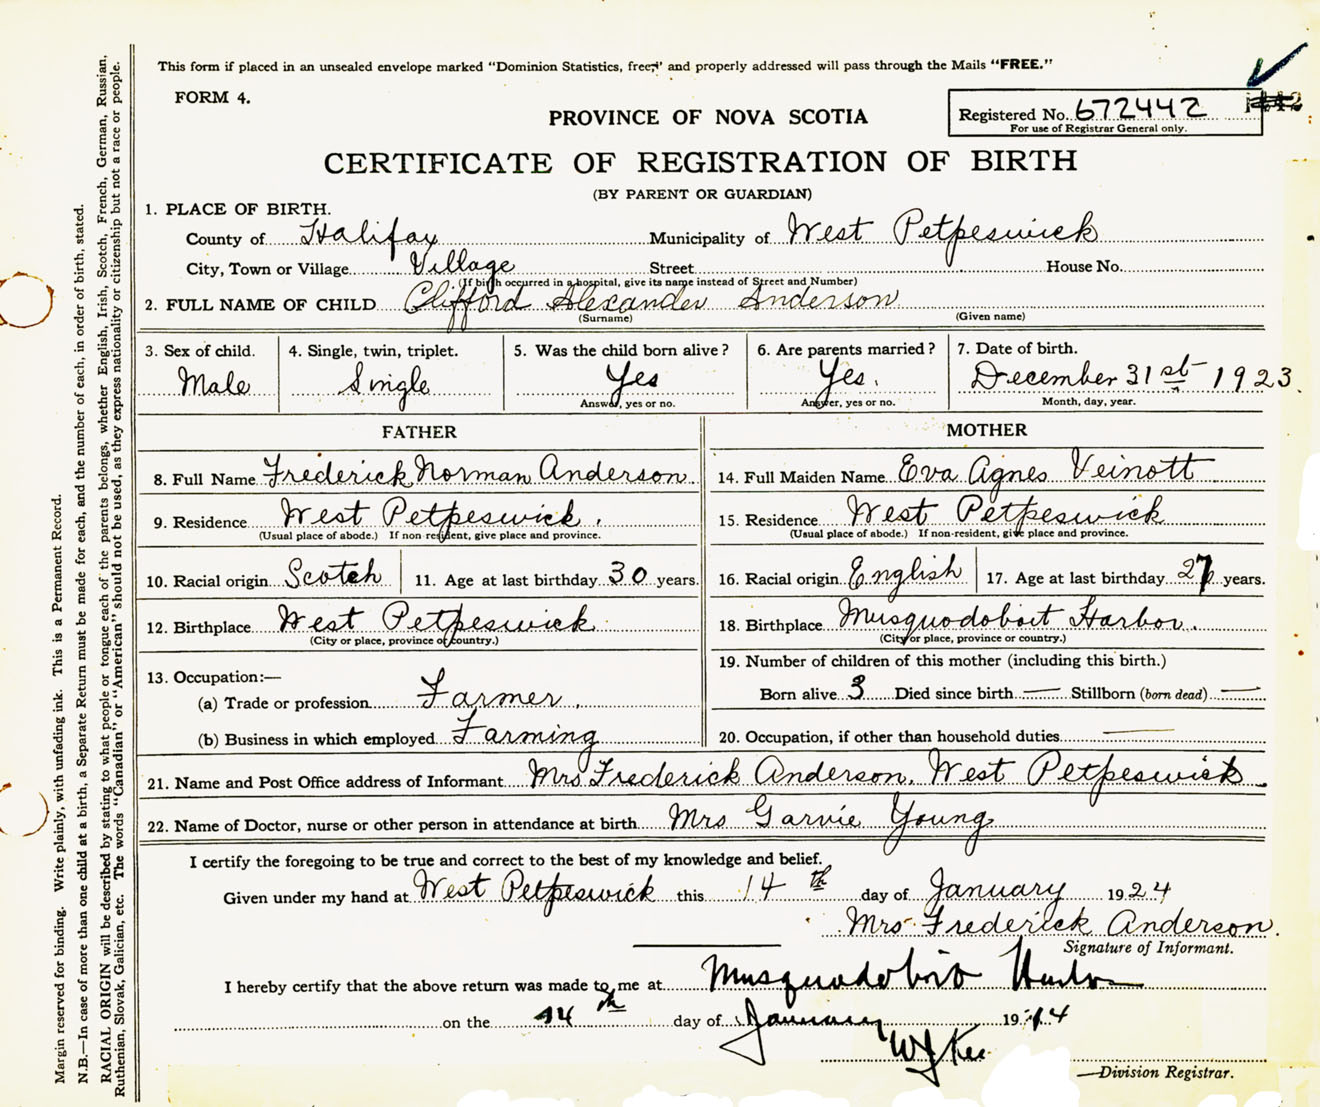 This form if placed in an unsealed envelope marked "Dominion Statistics, free," and properly addressed will pass through the Mails "FREE."
FORM 4.
PROVINCE OF NOVA SCOTIA
Registered No. 672442
For use of Registrar General only.
CERTIFICATE OF REGISTRATION OF BIRTH
(BY PARENT OR GUARDIAN)
1. PLACE OF BIRTH.
County of Halifax Municipality of West Petpeswick
City, Town or Village Village Street House No.
(If birth occurred in a hospital, give its name instead of Street and Number)
2. FULL NAME OF CHILD Clifford Alexander Anderson
(Surname) (Given name)
3. Sex of child. 4. Single, twin, triplet. 5. Was the child born alive? 6. Are parents married? 7. Date of birth.
Male Single Yes Yes. December 31st 1923.
Answer, yes or no. Answer, yes or no. Month, day, year.
FATHER MOTHER
8. Full Name Frederick Norman Anderson 14. Full Maiden Name Eva Agnes Veinott
9. Residence West Petpeswick. 15. Residence West Petpeswick
(Usual place of abode.) If non-resident, give place and province. (Usual place of abode.) If non-resident, give place and province.
10. Racial origin Scotch 11. Age at last birthday 30 years. 16. Racial origin English 17. Age at last birthday 27 years.
12. Birthplace West Petpeswick 18. Birthplace Musquodoboit Harbor.
(City or place, province or country.) (City or place, province or country.)
13. Occupation:— 19. Number of children of this mother (including this birth.)
(a) Trade or profession Farmer. Born alive 3 Died since birth — Stillborn (born dead) —
(b) Business in which employed Farming 20. Occupation, if other than household duties —
21. Name and Post Office address of Informant Mrs Frederick Anderson, West Petpeswick
22. Name of Doctor, nurse or other person in attendance at birth Mrs Garvie Young
I certify the foregoing to be true and correct to the best of my knowledge and belief.
Given under my hand at West Petpeswick this 14th day of January 1924
Mrs Frederick Anderson.
Signature of Informant.
I hereby certify that the above return was made to me at Musquodoboit Harbor
on the 14th day of January 19
Division Registrar.
Margin reserved for binding. Write plainly, with unfading ink. This is a Permanent Record.
N.B.—In case of more than one child at a birth, a Separate Return must be made for each, and the number of each, in order of birth, stated.
RACIAL ORIGIN will be described by stating to what people or tongue each of the parents belongs, whether English, Irish, Scotch, French, German, Russian,
Ruthenian, Slovak, Galician, etc. The words "Canadian" or "American" should not be used, as they express nationality or citizenship but not a race or people.